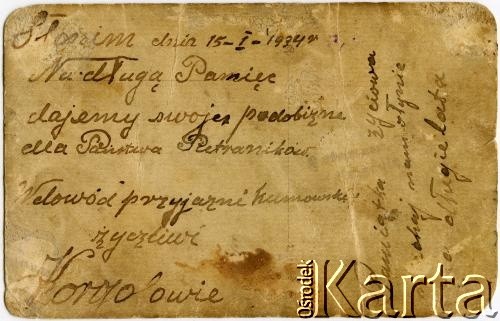 Słonim dnia 15-I-1934 r
Na długą Pamięć
dajemy swoje podobiznę
dla Państwa Pietraników
W dowód przyjaźni kumowskiej
życzliwi
Pamiątka życiowa
na długie lata
Ośrodek
Karta